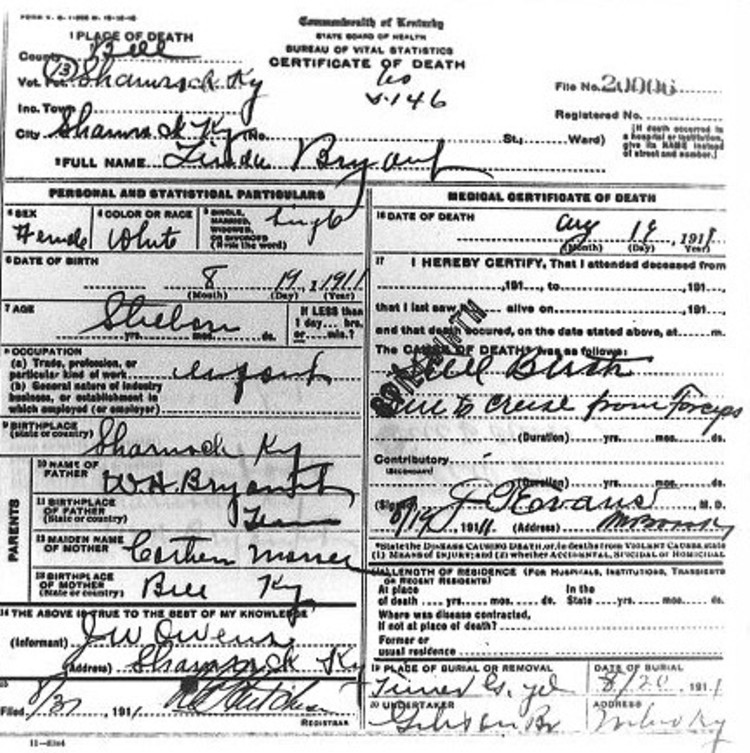 Commonwealth of Kentucky
STATE BOARD OF HEALTH
BUREAU OF VITAL STATISTICS
CERTIFICATE OF DEATH
1 PLACE OF DEATH
County Bell
Vot. Pct. 13 Shamrock Ky
File No. 20006
Inc. Town
Registered No.
City Shamrock Ky (No. St.; Ward)
[If death occurred in a hospital or institution, give its NAME instead of street and number.]
2 FULL NAME Bryant
PERSONAL AND STATISTICAL PARTICULARS
3 SEX Female
4 COLOR OR RACE White
5 SINGLE, MARRIED, WIDOWED, OR DIVORCED (Write the word) Single
6 DATE OF BIRTH
8 19, 1911
(Month) (Day) (Year)
7 AGE Stilborn
yrs. mos. ds.
If LESS than 1 day... hrs. or... min.?
8 OCCUPATION
(a) Trade, profession, or particular kind of work infant
(b) General nature of industry business, or establishment in which employed (or employer)
9 BIRTHPLACE (State or country) Shamrock Ky
PARENTS
10 NAME OF FATHER W.H. Bryant
11 BIRTHPLACE OF FATHER (State or country) Tenn
12 MAIDEN NAME OF MOTHER
13 BIRTHPLACE OF MOTHER (State or country) Bell Ky
14 THE ABOVE IS TRUE TO THE BEST OF MY KNOWLEDGE
(Informant) J W Owens
(Address) Shamrock Ky
15
Filed 191
REGISTRAR
11-6364
MEDICAL CERTIFICATE OF DEATH
16 DATE OF DEATH
Aug 19, 1911
(Month) (Day) (Year)
17 I HEREBY CERTIFY, That I attended deceased from
,191 , to ,191 ,
that I last saw h alive on ,191 ,
and that death occured, on the date stated above, at m.
The CAUSE OF DEATH was as follows:
STILLBIRTH
Still Birth
Due to from Forceps
(Duration) yrs. mos. ds.
Contributory
(SECONDARY)
(Duration) yrs. mos. ds.
(Signed) M. D.
8/19, 1911 (Address)
*State the DISEASE CAUSING DEATH, or, in deaths from VIOLENT CAUSES, state
(1) MEANS OF INJURY; and (2) whether ACCIDENTAL, SUICIDAL or HOMICIDAL
18 LENGTH OF RESIDENCE (FOR HOSPITALS, INSTITUTIONS, TRANSIENTS OR RECENT RESIDENTS)
At place of death yrs. mos. ds. In the State yrs. mos. ds.
Where was disease contracted, If not at place of death?
Former or usual residence
19 PLACE OF BURIAL OR REMOVAL
DATE OF BURIAL 8/20, 1911
20 UNDERTAKER Gibson Br
ADDRESS